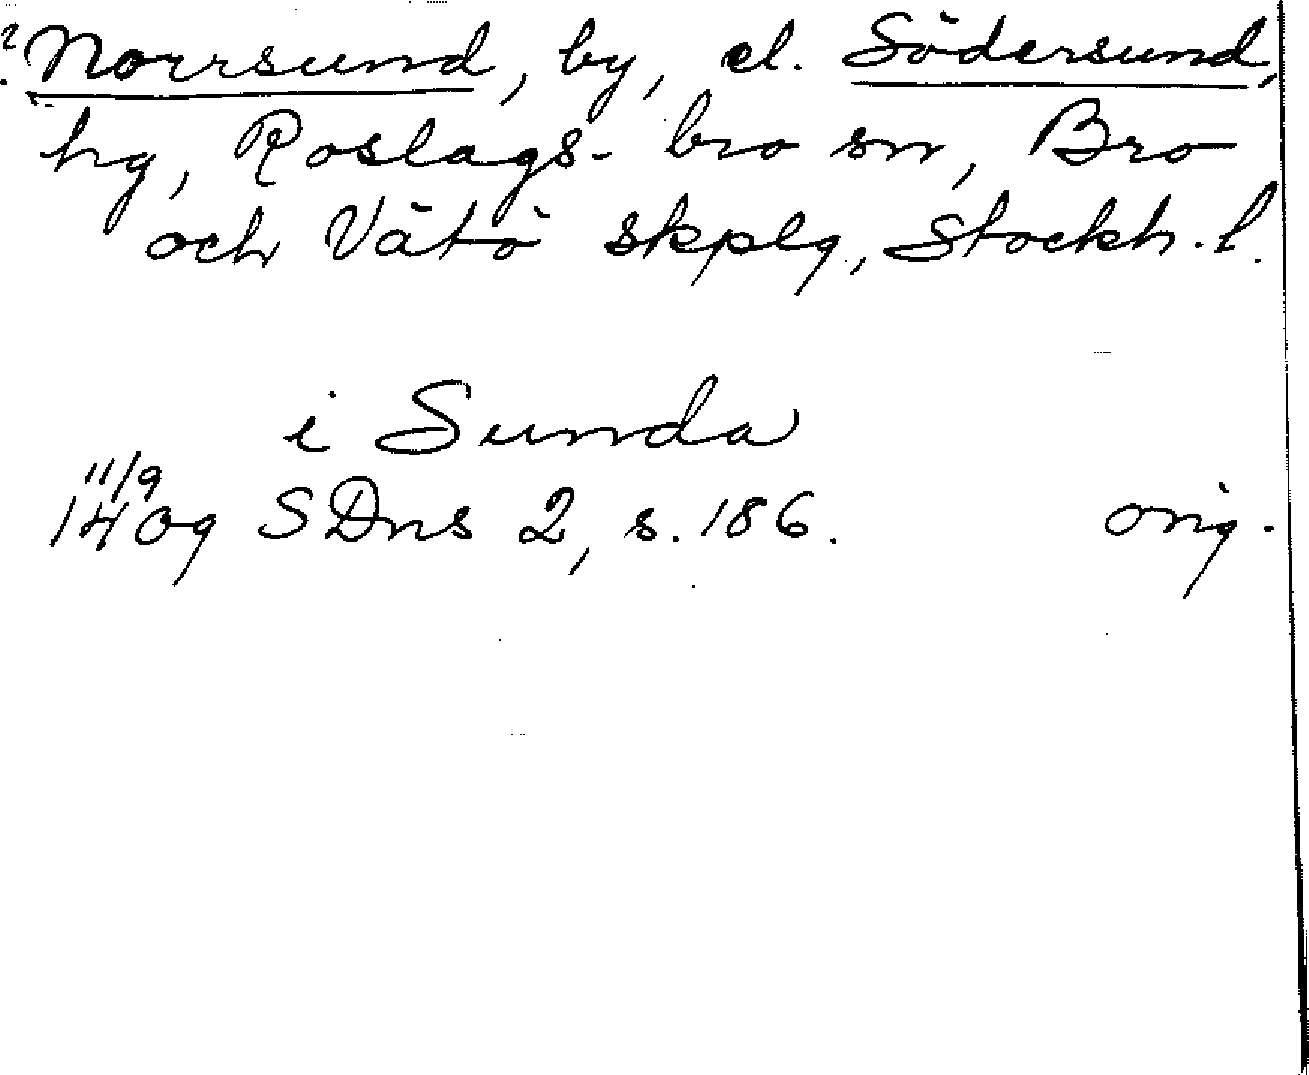 ? Norrsund, by, el. Södersund,
hg, Roslags-bro sn, Bro
och Vätö skplg, Stockh. l.
i Sunda
11/9
1409 SDns 2, s. 186. orig.